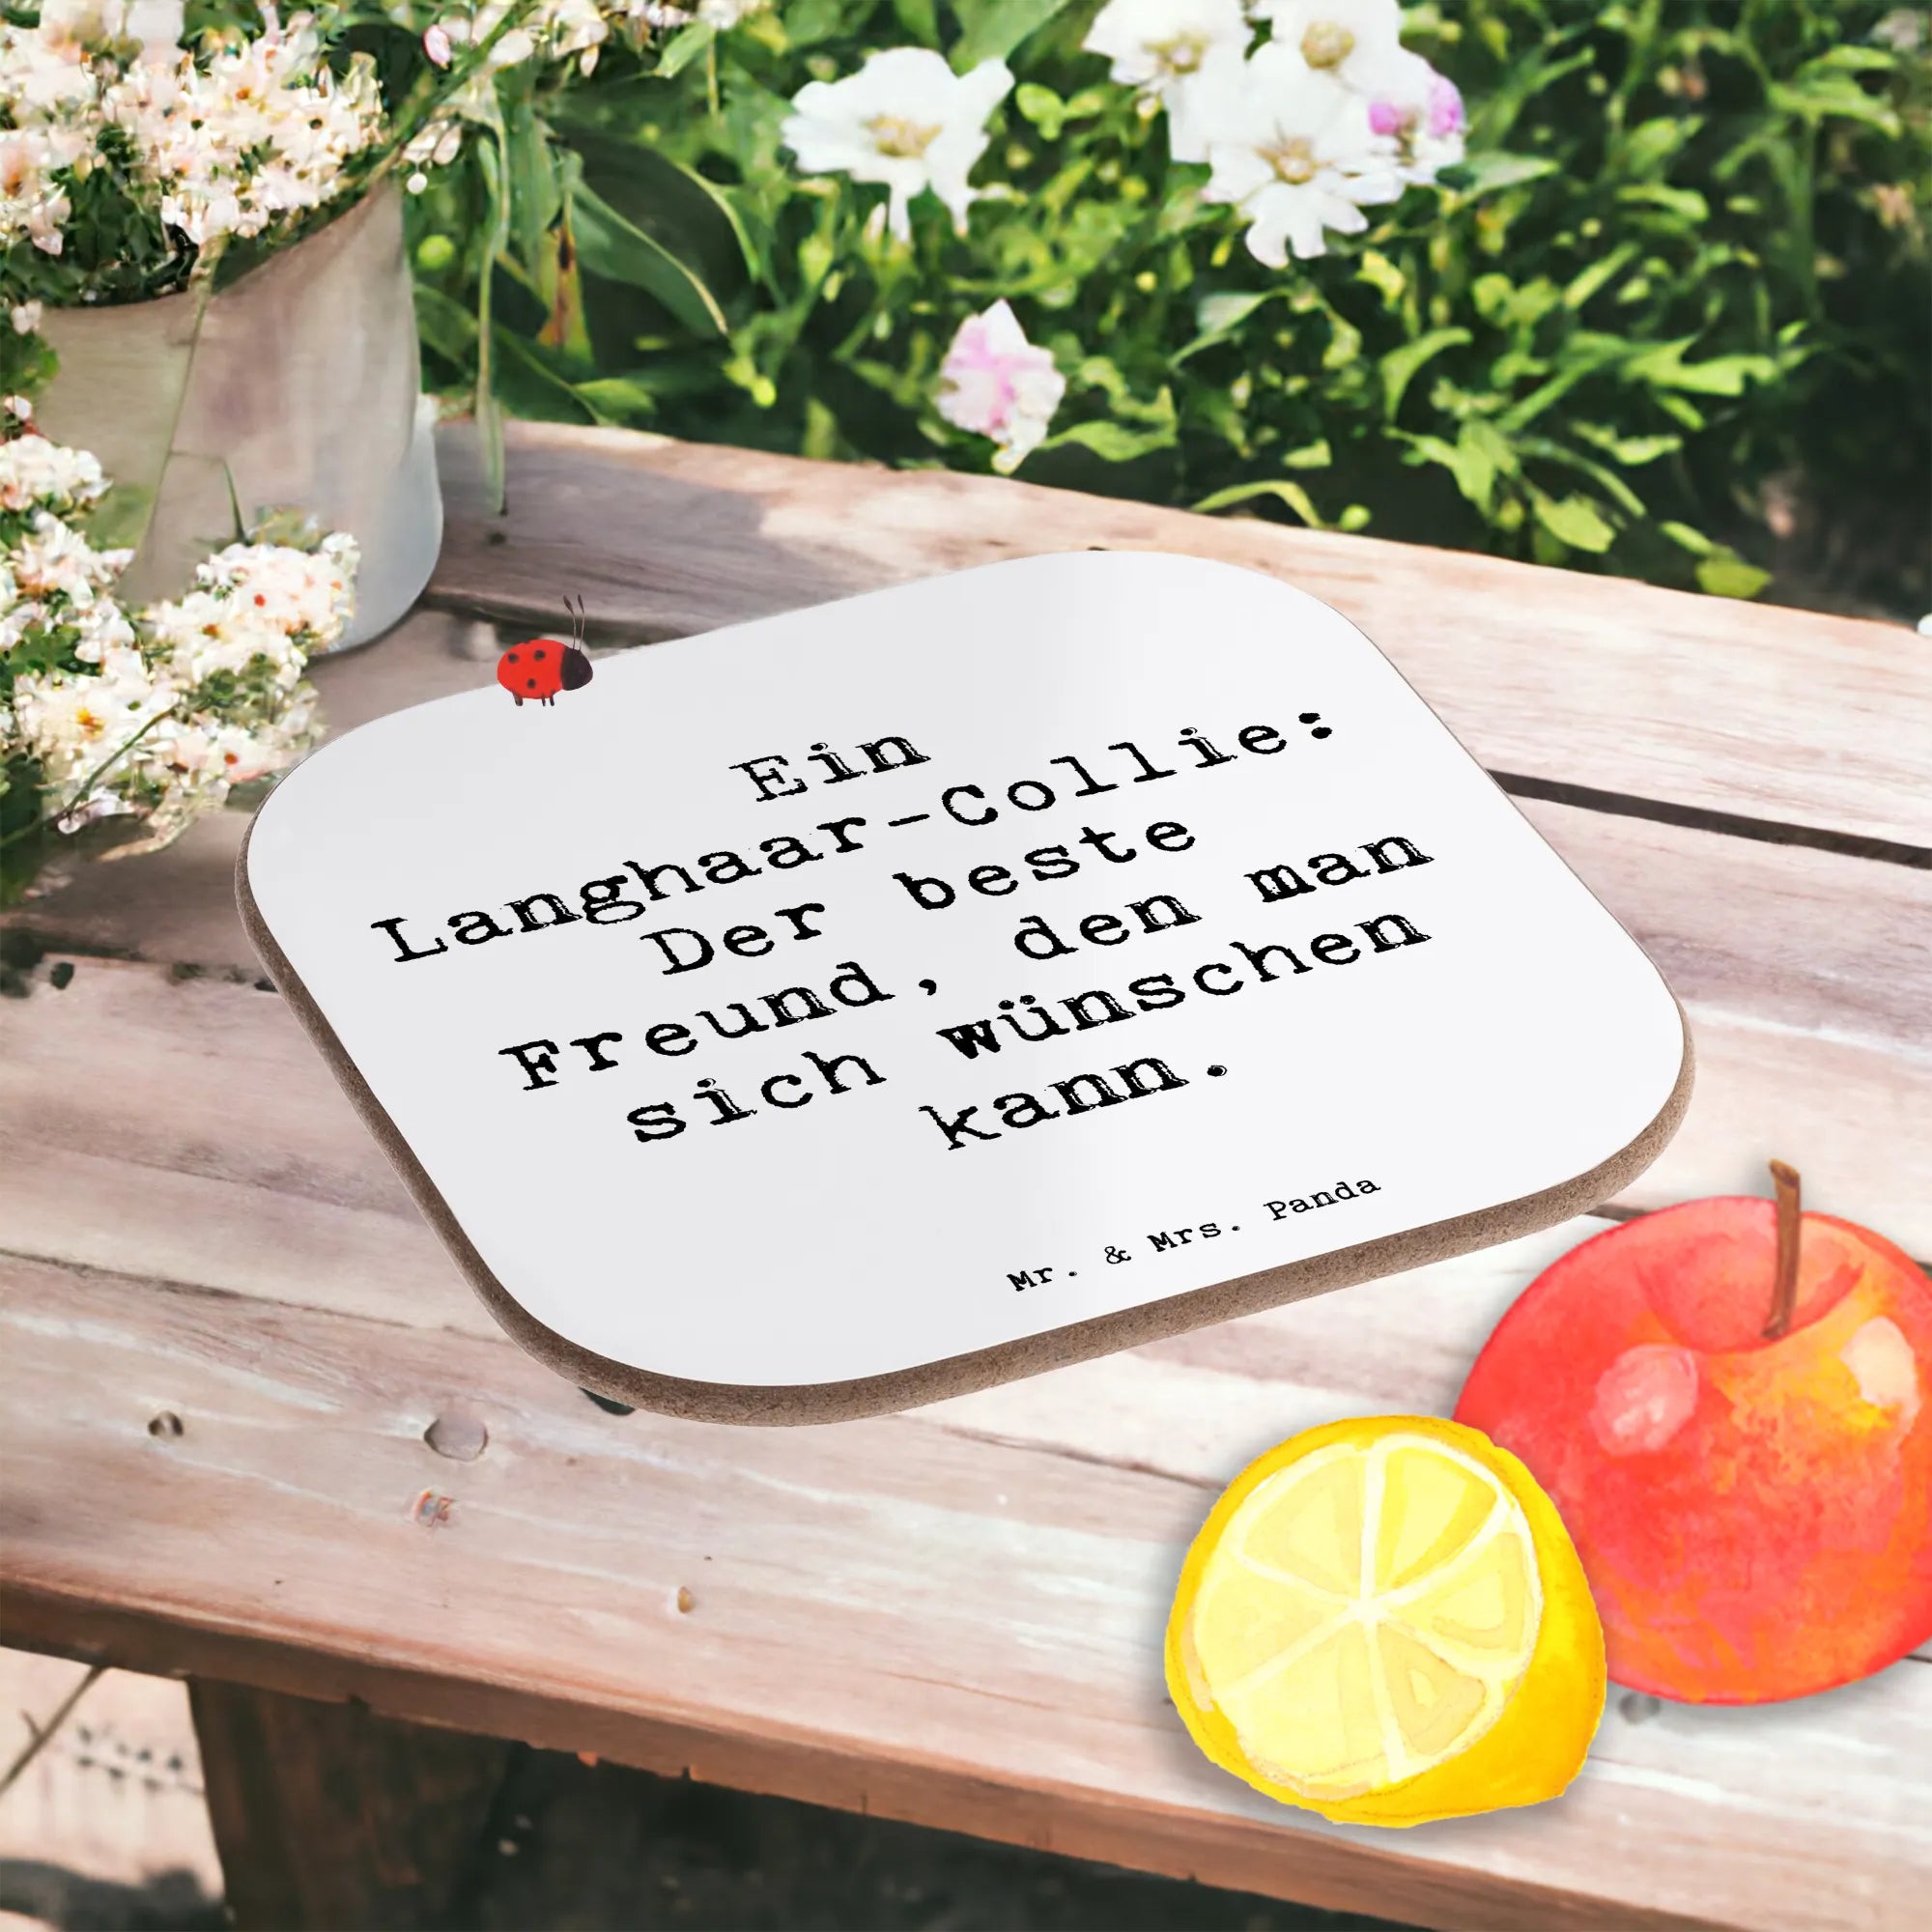 Ein
Langhaar-Collie:
Der beste
Freund, den man
sich wünschen
kann.
Mr. & Mrs. Panda